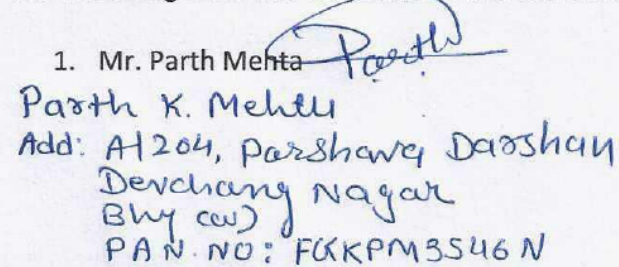 1. Mr. Parth Mehta Parth
Parth K. Mehta
Add: A/204, Parshwa Darshan
Devchang Nagar
Bhy (w)
PAN. NO: